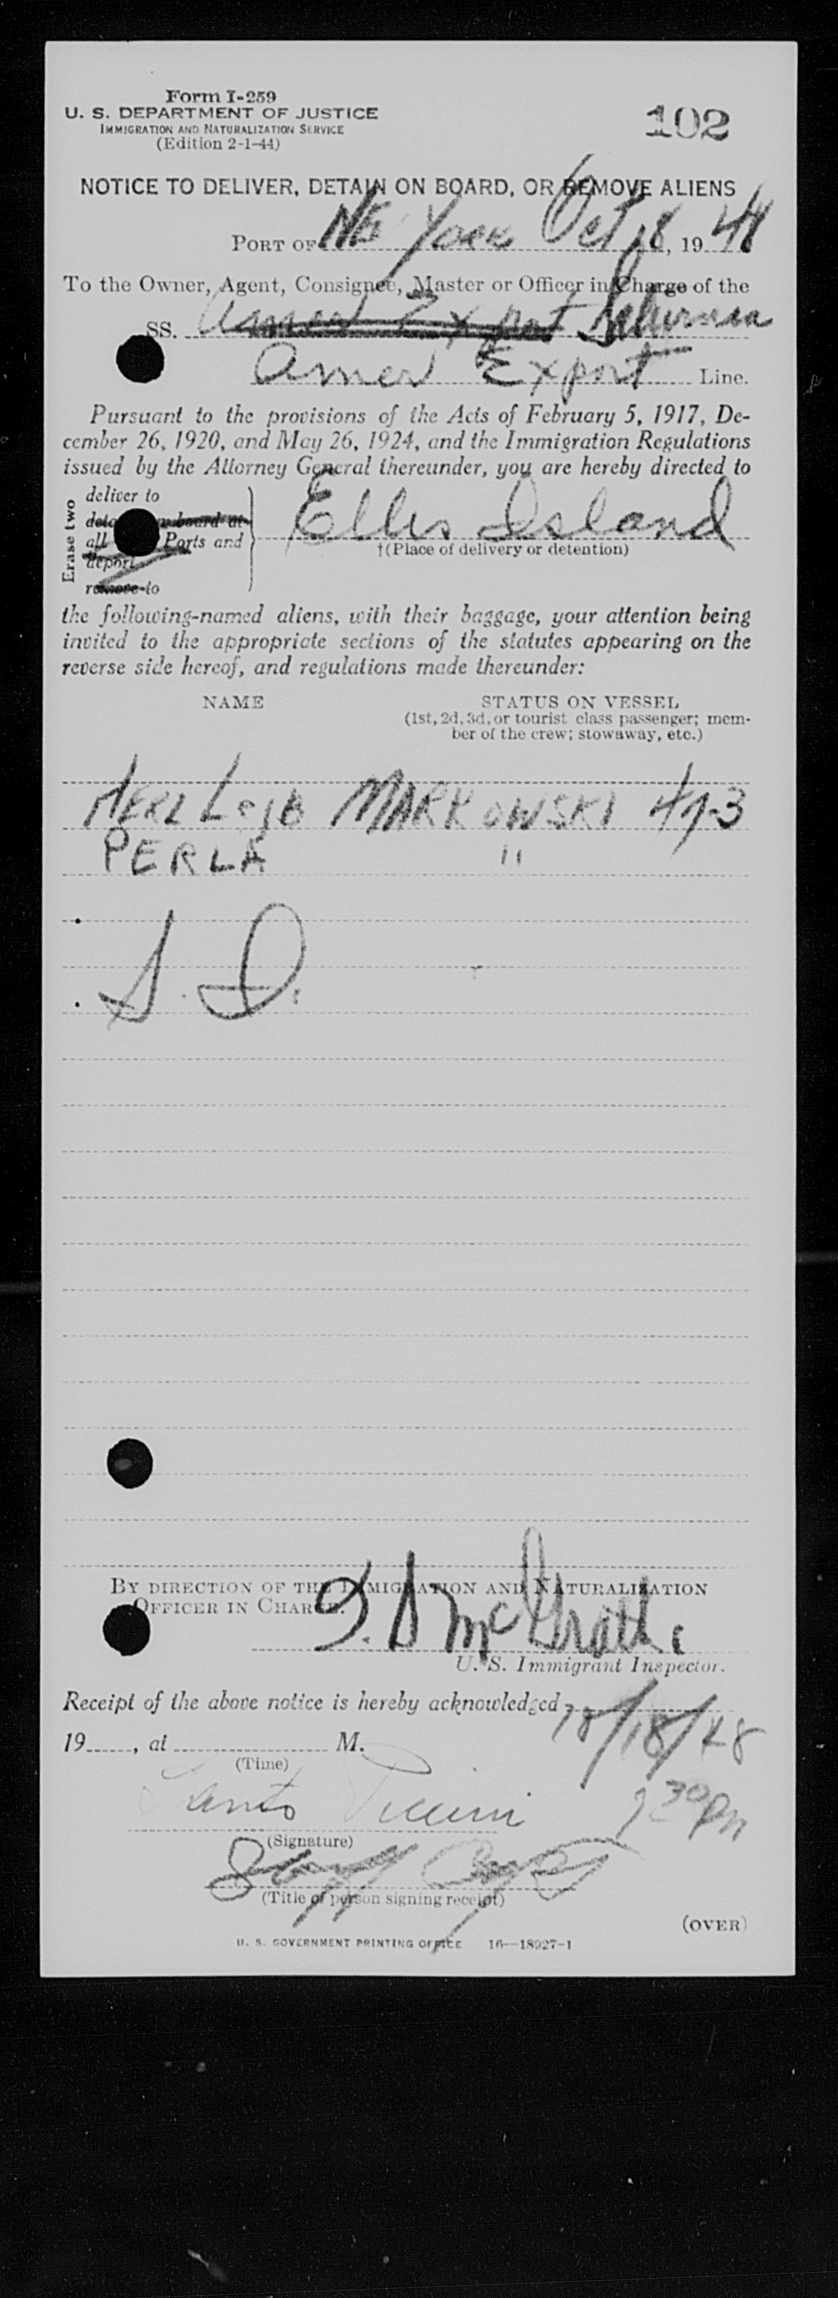 Form I-259
U. S. DEPARTMENT OF JUSTICE
IMMIGRATION AND NATURALIZATION SERVICE
(Edition 2-1-44)
102
NOTICE TO DELIVER, DETAIN ON BOARD, OR REMOVE ALIENS
PORT OF New York Oct 18, 1948
To the Owner, Agent, Consignee, Master or Officer in Charge of the
SS. Amer Export
Amer Export Line.
Pursuant to the provisions of the Acts of February 5, 1917, De-
cember 26, 1920, and May 26, 1924, and the Immigration Regulations
issued by the Attorney General thereunder, you are hereby directed to
Erase two
deliver to
board at
all Ports and
deport
remove to
Ellis Island
†(Place of delivery or detention)
the following-named aliens, with their baggage, your attention being
invited to the appropriate sections of the statutes appearing on the
reverse side hereof, and regulations made thereunder:
NAME STATUS ON VESSEL
(1st, 2d, 3d, or tourist class passenger; mem-
ber of the crew; stowaway, etc.)
LejB MARKOWSKI 47-3
PERLA "
S. I.
BY DIRECTION OF THE IMMIGRATION AND NATURALIZATION
OFFICER IN CHARGE.
McGrath
U. S. Immigrant Inspector.
Receipt of the above notice is hereby acknowledged 18/18/48
19 , at M.
(Time)
30 PM
Santo
(Signature)
(Title of person signing receipt)
(OVER)
U. S. GOVERNMENT PRINTING OFFICE 16—18927-1